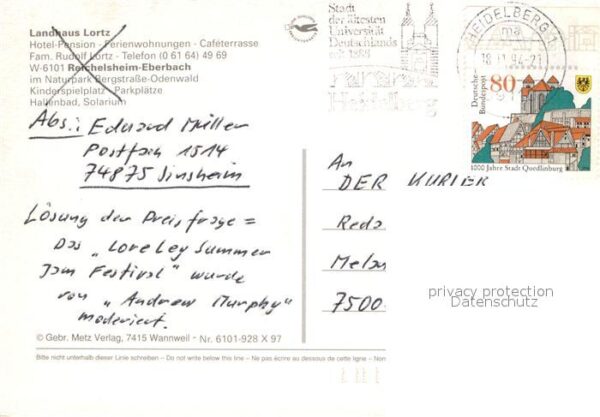 Landhaus Lortz
Hotel-Pension - Ferienwohnungen - Caféterrasse
Fam. Rudolf Lortz - Telefon (0 61 64) 49 69
W-6101 Reichelsheim-Eberbach
im Naturpark Bergstraße-Odenwald
Kinderspielplatz Parkplätze
Hallenbad, Solarium
Abs.: Eduard Müller
Postfach 1514
74875 Sinsheim
Lösung der Preisfrage =
Das "Loreley Summer
Jam Festival" wurde
von "Andrew Murphy"
moderiert.
© Gebr. Metz Verlag, 7415 Wannweil - Nr. 6101-928 X 97
Bitte nicht unterhalb dieser Linie schreiben – Do not write below this line – Ne pas écrire au dessous de cette ligne – Non
Stadt
der ältesten
Universität
Deutschlands
seit 1386
Heidelberg
HEIDELBERG 1
ma
18.11.94-21
Deutsche
Bundespost
80
1000 Jahre Stadt Quedlinburg
An
DER KURIER
Reda
Melan
7500
privacy protection
Datenschutz